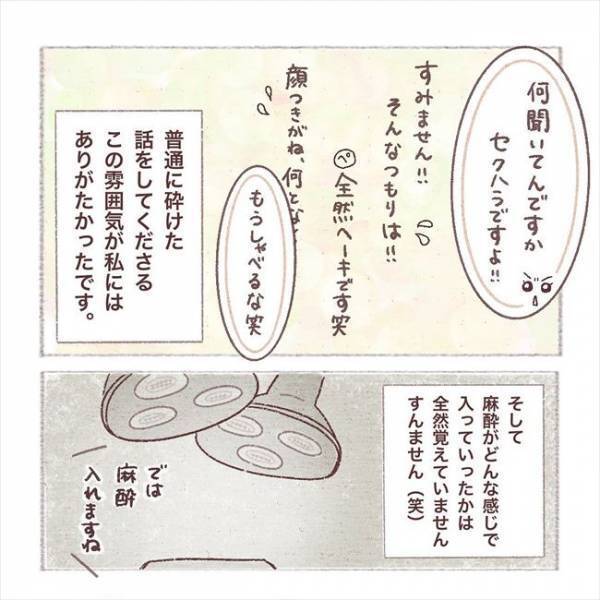 何聞いてんですか
セクハラですよ!!
すみません!!
そんなつもりは!!
ペ 全然ヘーキです笑
顔つきがね、何となく
もうしゃべるな笑
普通に砕けた
話をしてくださる
この雰囲気が私には
ありがたかったです。
そして
麻酔がどんな感じで
入っていったかは
全然覚えていません
すんません（笑）
では
麻酔
入れますね